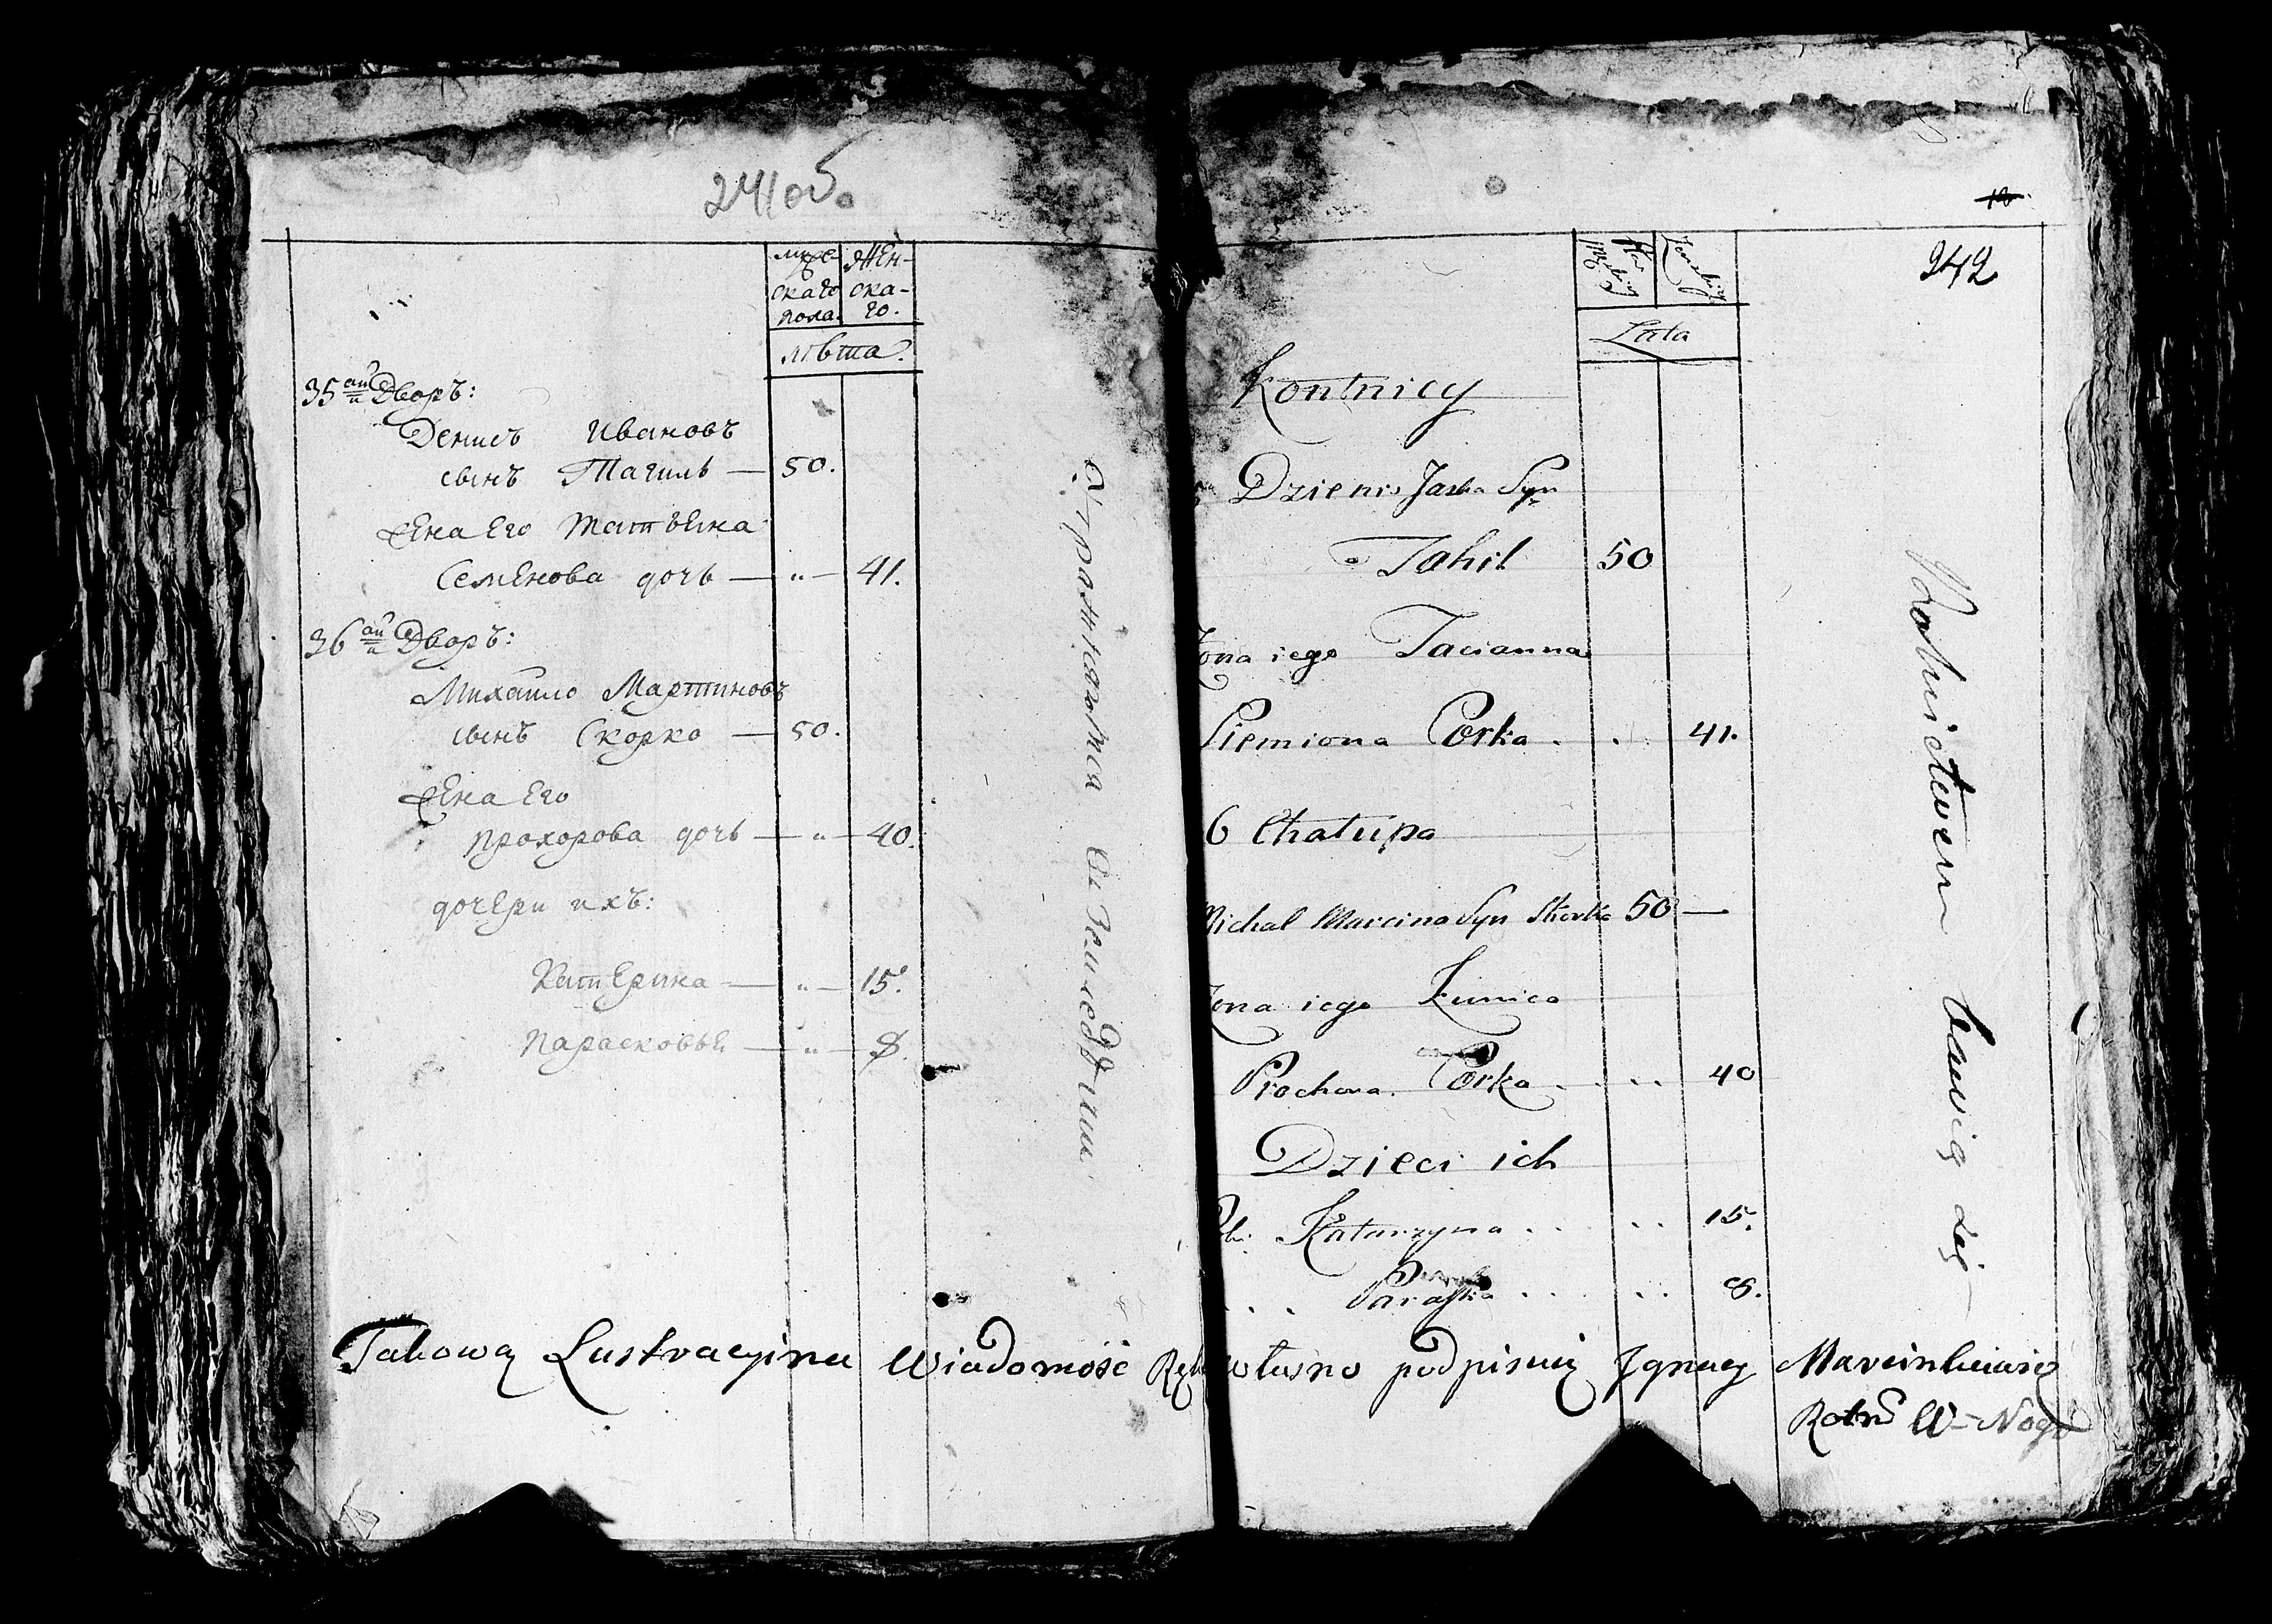 241об.
муже-
скаго
пола.
жен-
ска-
го.
лѣта.
35ый Дворъ:
Денисъ Ивановъ
сынъ Тагиль — 50.
жена его Татьяна
Семенова дочь — " — 41.
36ый Дворъ:
Михайло Мартиновъ
сынъ Скорко — 50.
жена его
Прохорова дочь — " — 40.
дочери ихъ:
Катерина — " — 15.
Парасковья — " — 8.
Упражняются въ
242
Lata
Kontnicy
Dzienis Jaska Syn
Tahil 50
Zona iego Tacianna
Siemiona Corka . . 41.
6 Chałupa
Michał Marcina Syn Skorko 50 —
Zona iego Kunica
Prochora Corka . . . 40
Dzieci ich
Katarzyna . . . . 15.
. . Paraska . . . . 8.
Rolnictwem bawią się
Takową Lustracyina Wiadomość Ręką własno podpisuię Ignacy Marcinkiewicz
Rotm W. Nogo